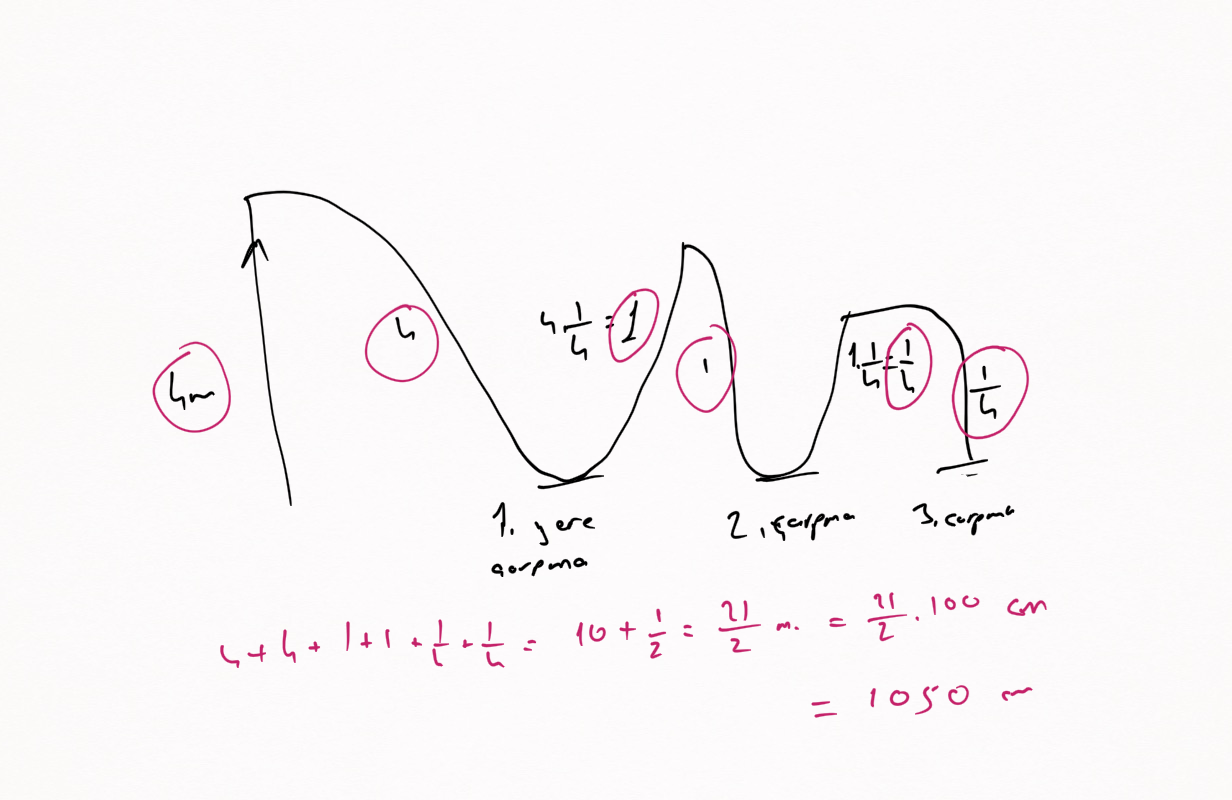 4m
4
4 · 1/4 = 1
1
1 · 1/4 = 1/4
1/4
1. yere
çarpma
2. çarpma
3. çarpma
4 + 4 + 1 + 1 + 1/4 + 1/4 = 10 + 1/2 = 21/2 m. = 21/2 . 100 cm
= 1050 cm